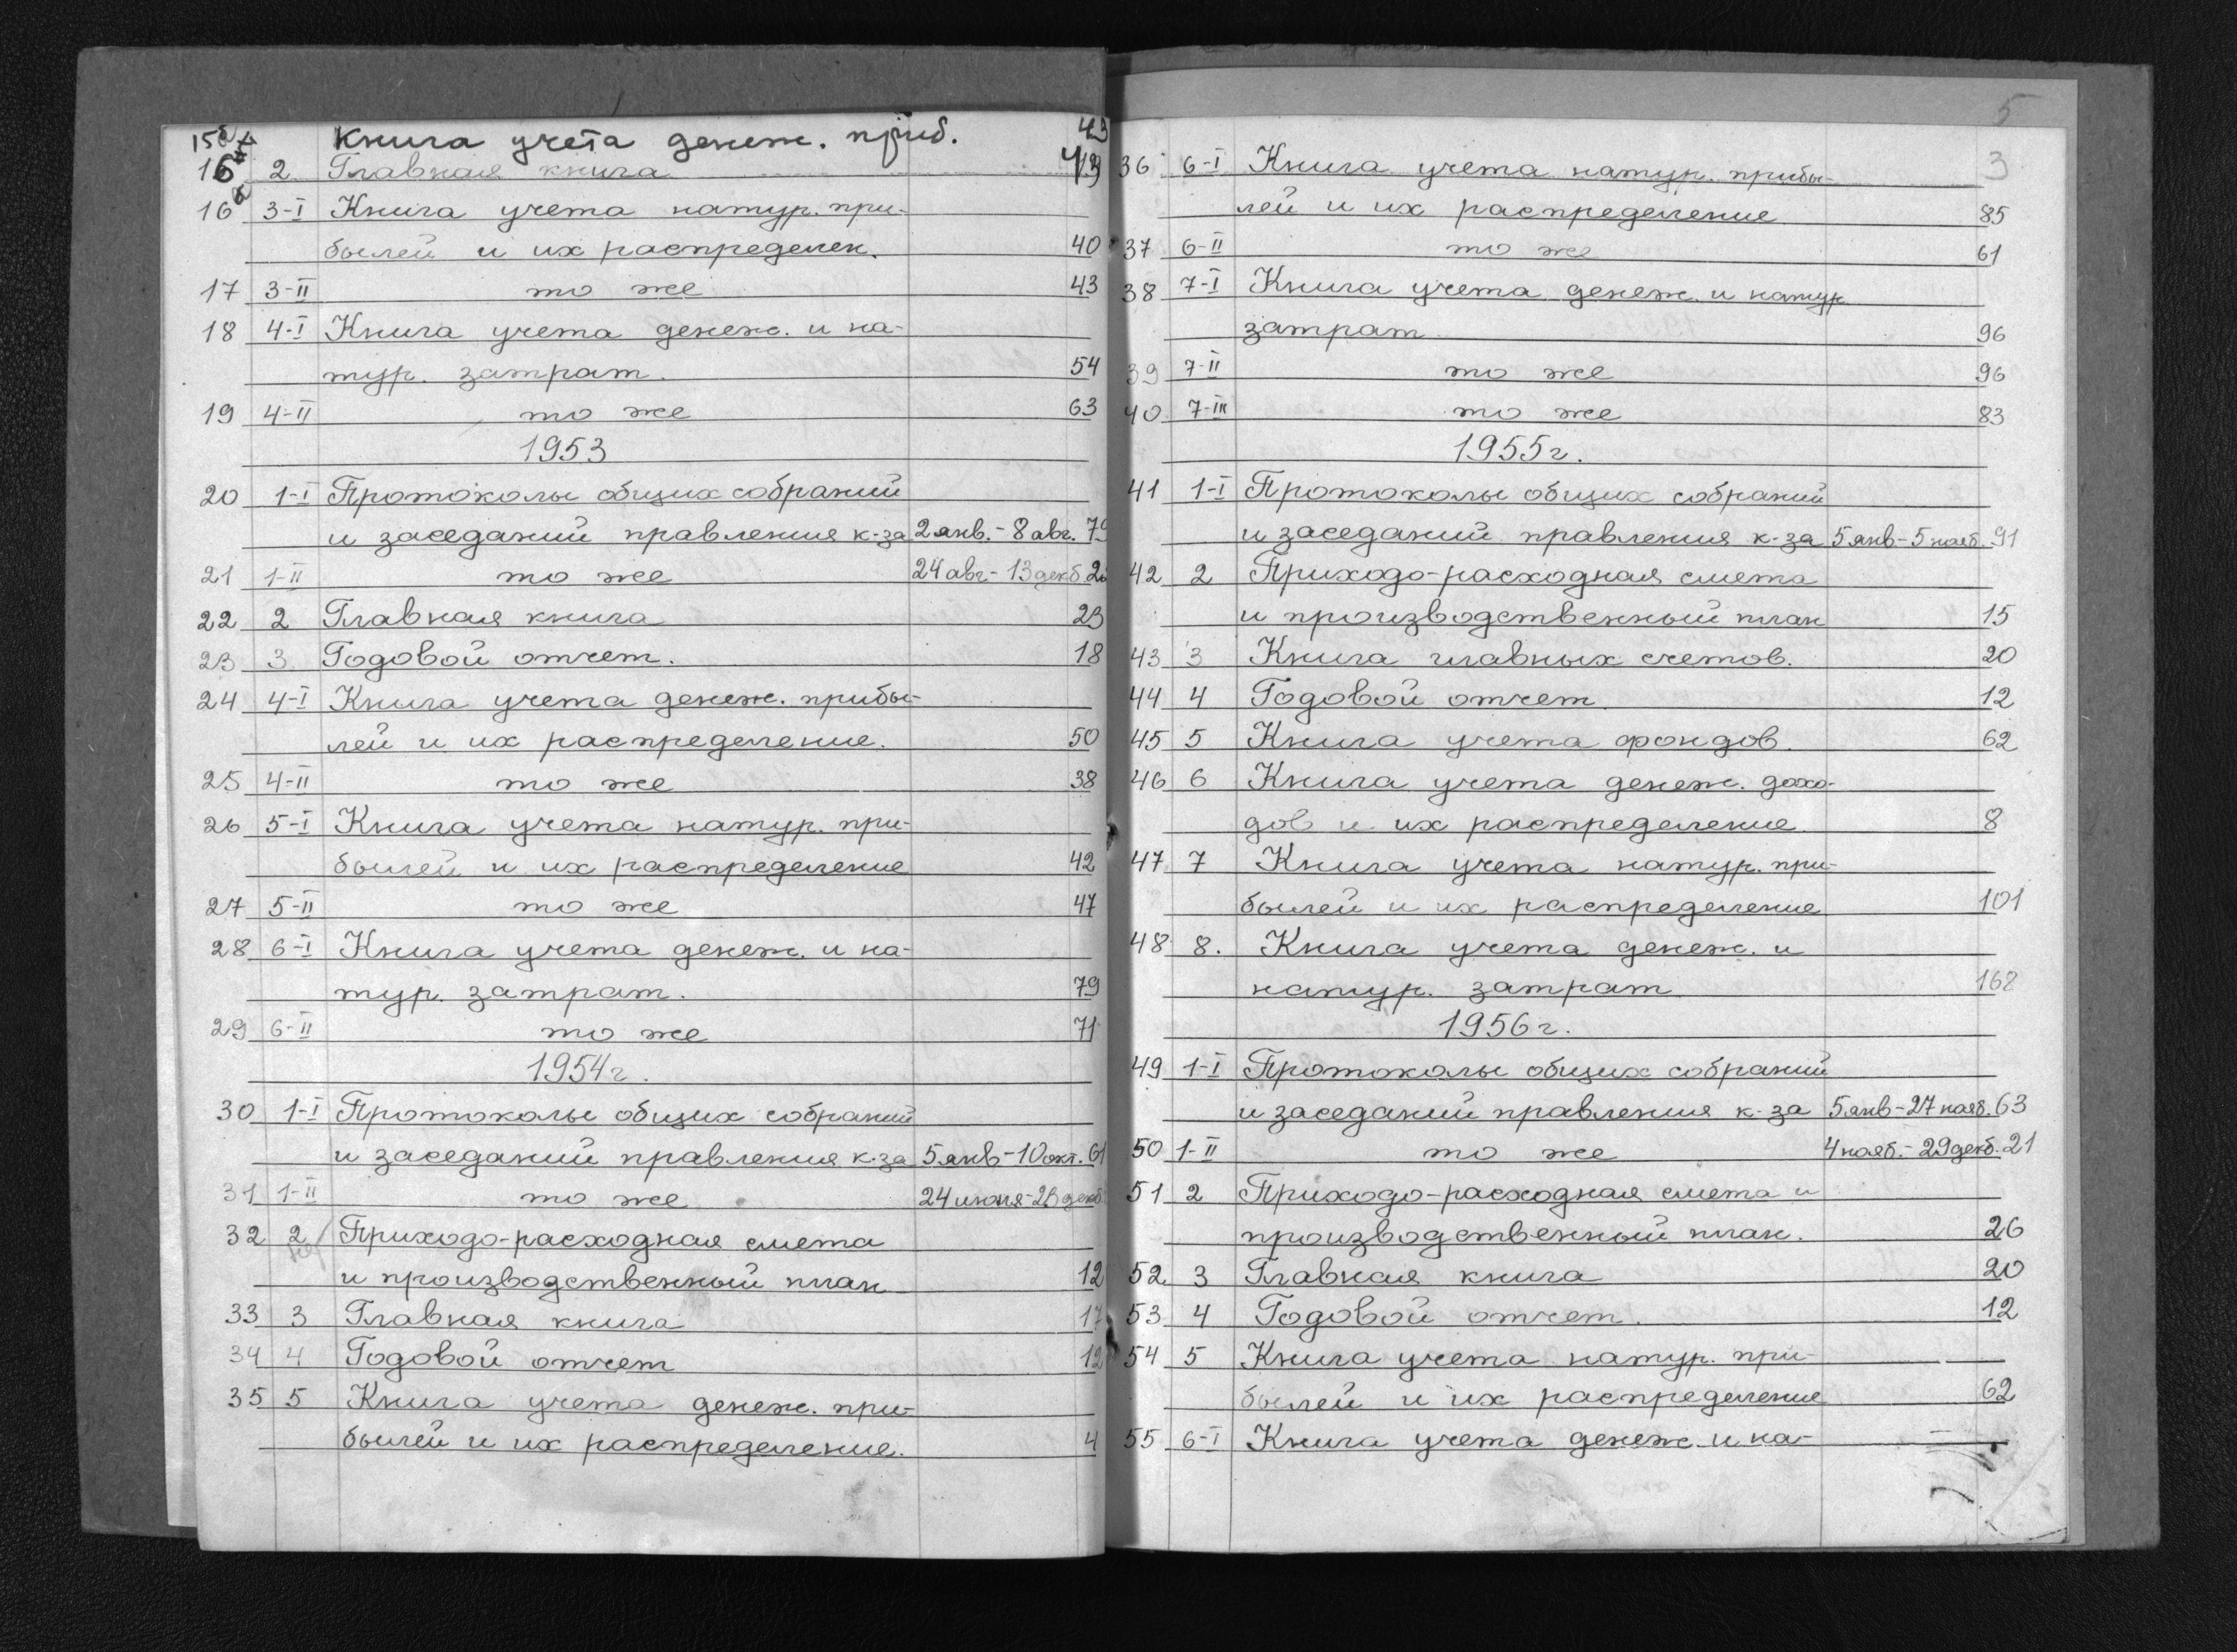 15б Книга учета денеж. приб. 43
16 2 Главная книга
16а 3-I Книга учета натур. при-
былей и их распределен. 40
17 3-II то же 43
18 4-I Книга учета денеж. и на-
тур. затрат. 54
19 4-II то же 63
1953
20 1-I Протоколы общих собраний
и заседаний правления к-за 2 янв. - 8 авг. 79
21 1-II то же 24 авг - 13 декб.
22 2 Главная книга 23
23 3 Годовой отчет. 18
24 4-I Книга учета денеж. прибы-
лей и их распределение. 50
25 4-II то же 38
26 5-I Книга учета натур. при-
былей и их распределение 42
27 5-II то же 47
28 6-I Книга учета денеж. и на-
тур. затрат. 79
29 6-II то же 71
1954г.
30 1-I Протоколы общих собраний
и заседаний правления к-за 5 янв - 10 окт. 61
31 1-II то же 24 июля - 23 декб.
32 2 Приходо-расходная смета
и производственный план 12
33 3 Главная книга 17
34 4 Годовой отчет 12
35 5 Книга учета денеж. при-
былей и их распределение. 4
5
3
36 6-I Книга учета натур. прибы-
лей и их распределение 85
37 6-II то же 61
38 7-I Книга учета денеж. и натур
затрат 96
39 7-II то же 96
40 7-III то же 83
1955г.
41 1-I Протоколы общих собраний
и заседаний правления к-за 5 янв - 5 нояб. 91
42 2 Приходо-расходная смета
и производственный план 15
43 3 Книга главных счетов. 20
44 4 Годовой отчет 12
45 5 Книга учета фондов. 62
46 6 Книга учета денеж. дохо-
дов и их распределение. 8
47 7 Книга учета натур. при-
былей и их распределение 101
48 8. Книга учета денеж. и
натур. затрат 168
1956г.
49 1-I Протоколы общих собраний
и заседаний правления к-за 5 янв - 27 нояб. 63
50 1-II то же 4 нояб. - 29 декб. 21
51 2 Приходо-расходная смета и
производственный план. 26
52 3 Главная книга 20
53 4 Годовой отчет. 12
54 5 Книга учета натур. при-
былей и их распределение 62
55 6-I Книга учета денеж. и на-